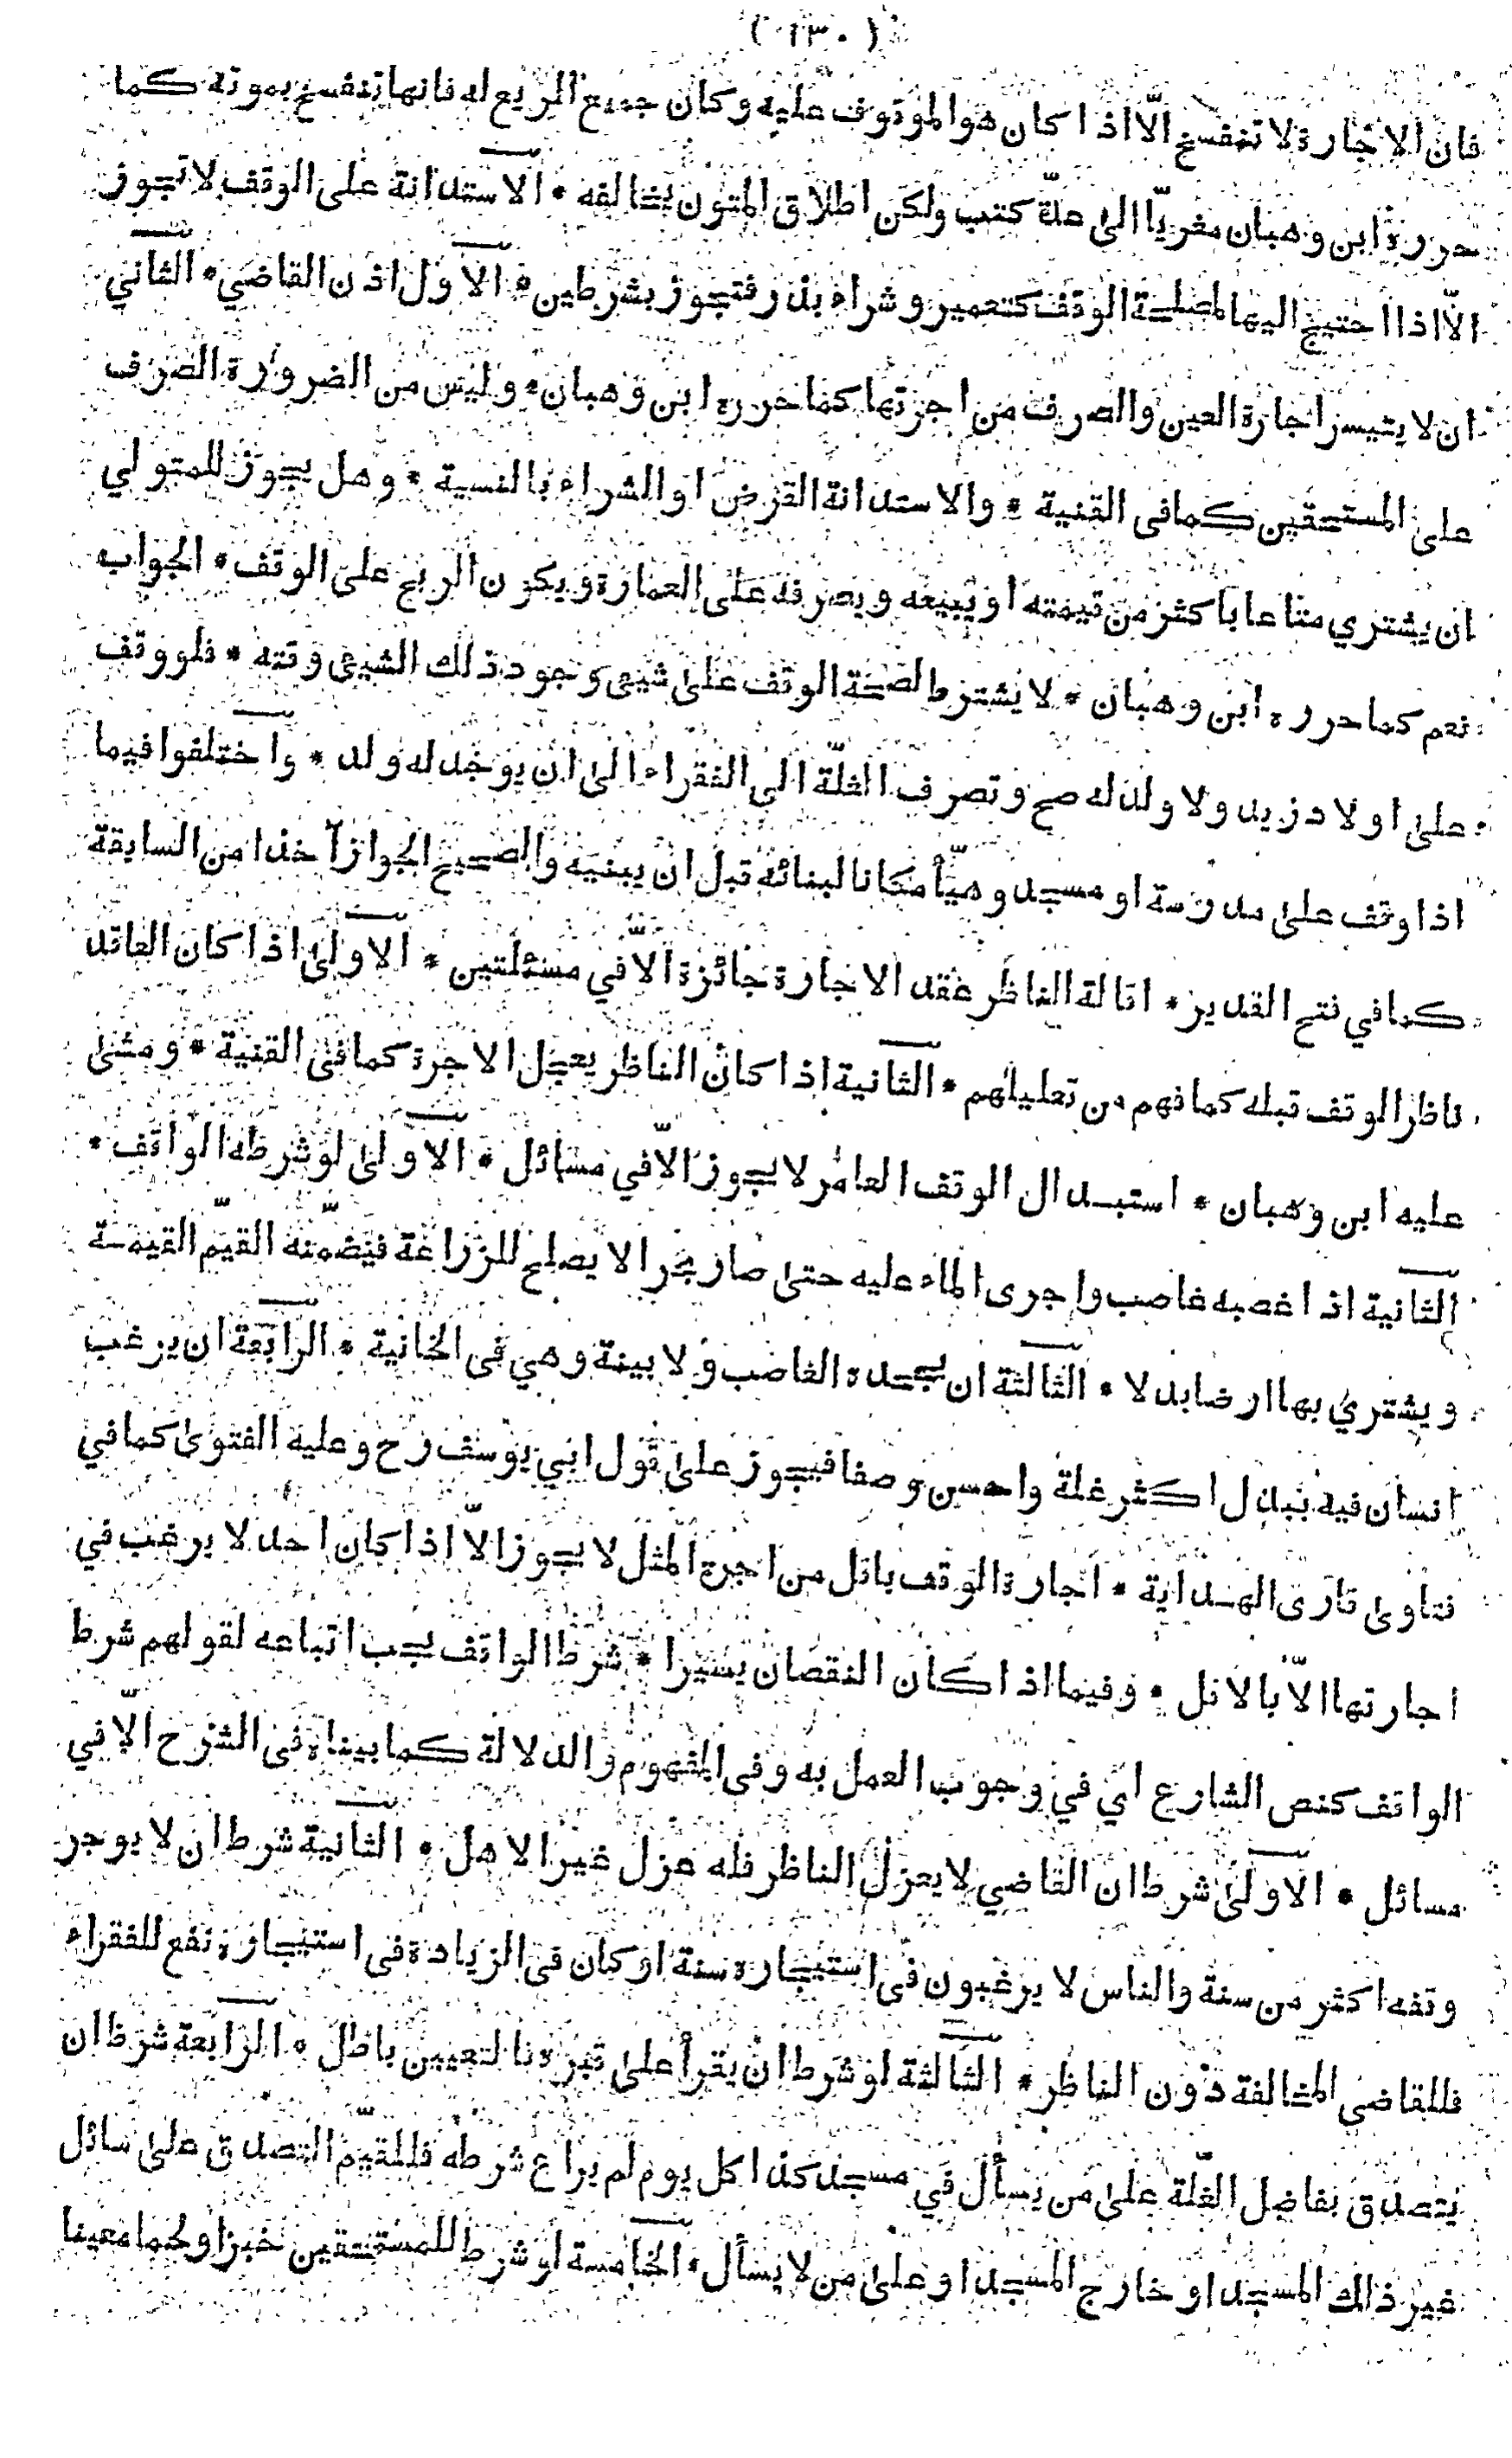 ( ١٣٠ )
فان الاجارة لا تنفسخ الّا اذا كان هو الموقوف عليه وكان جميع الريع له فانها تنفسخ بموته كما
حرره ابن وهبان مغريّا الى عدّة كتب ولكن اطلاق المتون يخالفه * الاستدانة على الوقف لا تجوز
الّا اذا احتيج اليها لمصلحة الوقف كتعمير وشراء بذر فتجوز بشرطين * الاول اذن القاضي * الثاني
ان لا يتيسر اجارة العين والصرف من اجرتها كما حرره ابن وهبان * وليس من الضرورة الصرف
على المستحقين كما فى القنية * والاستدانة القرض او الشراء بالنسية * وهل يجوز للمتولي
ان يشتري متاعا باكثر من قيمته او يبيعه ويصرفه على العمارة ويكون الربح على الوقف * الجواب
نعم كما حرره ابن وهبان * لا يشترط لصحة الوقف على شيء وجود ذلك الشيء وقته * فلو وقف
على اولاد زيد ولا ولد له صح وتصرف الغلّة الى الفقراء الى ان يوجد له ولد * واختلفوا فيما
اذا وقف على مدرسة او مسجد وهيّأ مكانا لبنائه قبل ان يبنيه والصحيح الجواز آخذا من السابقة
كما في فتح القدير * اقالة الناظر عقد الاجارة جائزة الّا في مسئلتين * الاولى اذا كان العاقد
ناظر الوقف قبله كما فهم من تعليلهم * الثانية اذا كان الناظر يعجل الاجرة كما فى القنية * ومشى
عليه ابن وهبان * استبدال الوقف العامر لا يجوز الّا في مسائل * الاولى لو شرطه الواقف *
الثانية اذا غصبه غاصب واجرى الماء عليه حتى صار بحرا لا يصلح للزراعة فيضمّنه القيّم القيمة
ويشتري بها ارضا بدلا * الثالثة ان يجحده الغاصب ولا بينة وهي فى الخانية * الرابعة ان يرغب
انسان فيه ببدل اكثر غلة واحسن وصفا فيجوز على قول ابي يوسف رح وعليه الفتوى كما في
فتاوى قارى الهداية * اجارة الوقف باقل من اجرة المثل لا يجوز الّا اذا كان احد لا يرغب في
اجارتها الّا بالاقل * وفيما اذا كان النقصان يسيرا * شرط الواقف يجب اتباعه لقولهم شرط
الواقف كنص الشارع اي في وجوب العمل به وفى المفهوم والدلالة كما بيناه فى الشرح الّا في
مسائل * الاولى شرط ان القاضي لا يعزل الناظر فله عزل غير الاهل * الثانية شرط ان لا يوجر
وقفه اكثر من سنة والناس لا يرغبون فى استيجاره سنة او كان فى الزيادة فى استيجاره نفع للفقراء
فللقاضى المخالفة دون الناظر * الثالثة لو شرط ان يقرأ على قبره فالتعيين باطل * الرابعة شرط ان
يتصدق بفاضل الغلّة على من يسأل في مسجد كذا كل يوم لم يراع شرطه فللقيّم التصدق على سائل
غير ذلك المسجد او خارج المسجد او على من لا يسأل * الخامسة لو شرط للمستحقين خبزا ولحما معينا